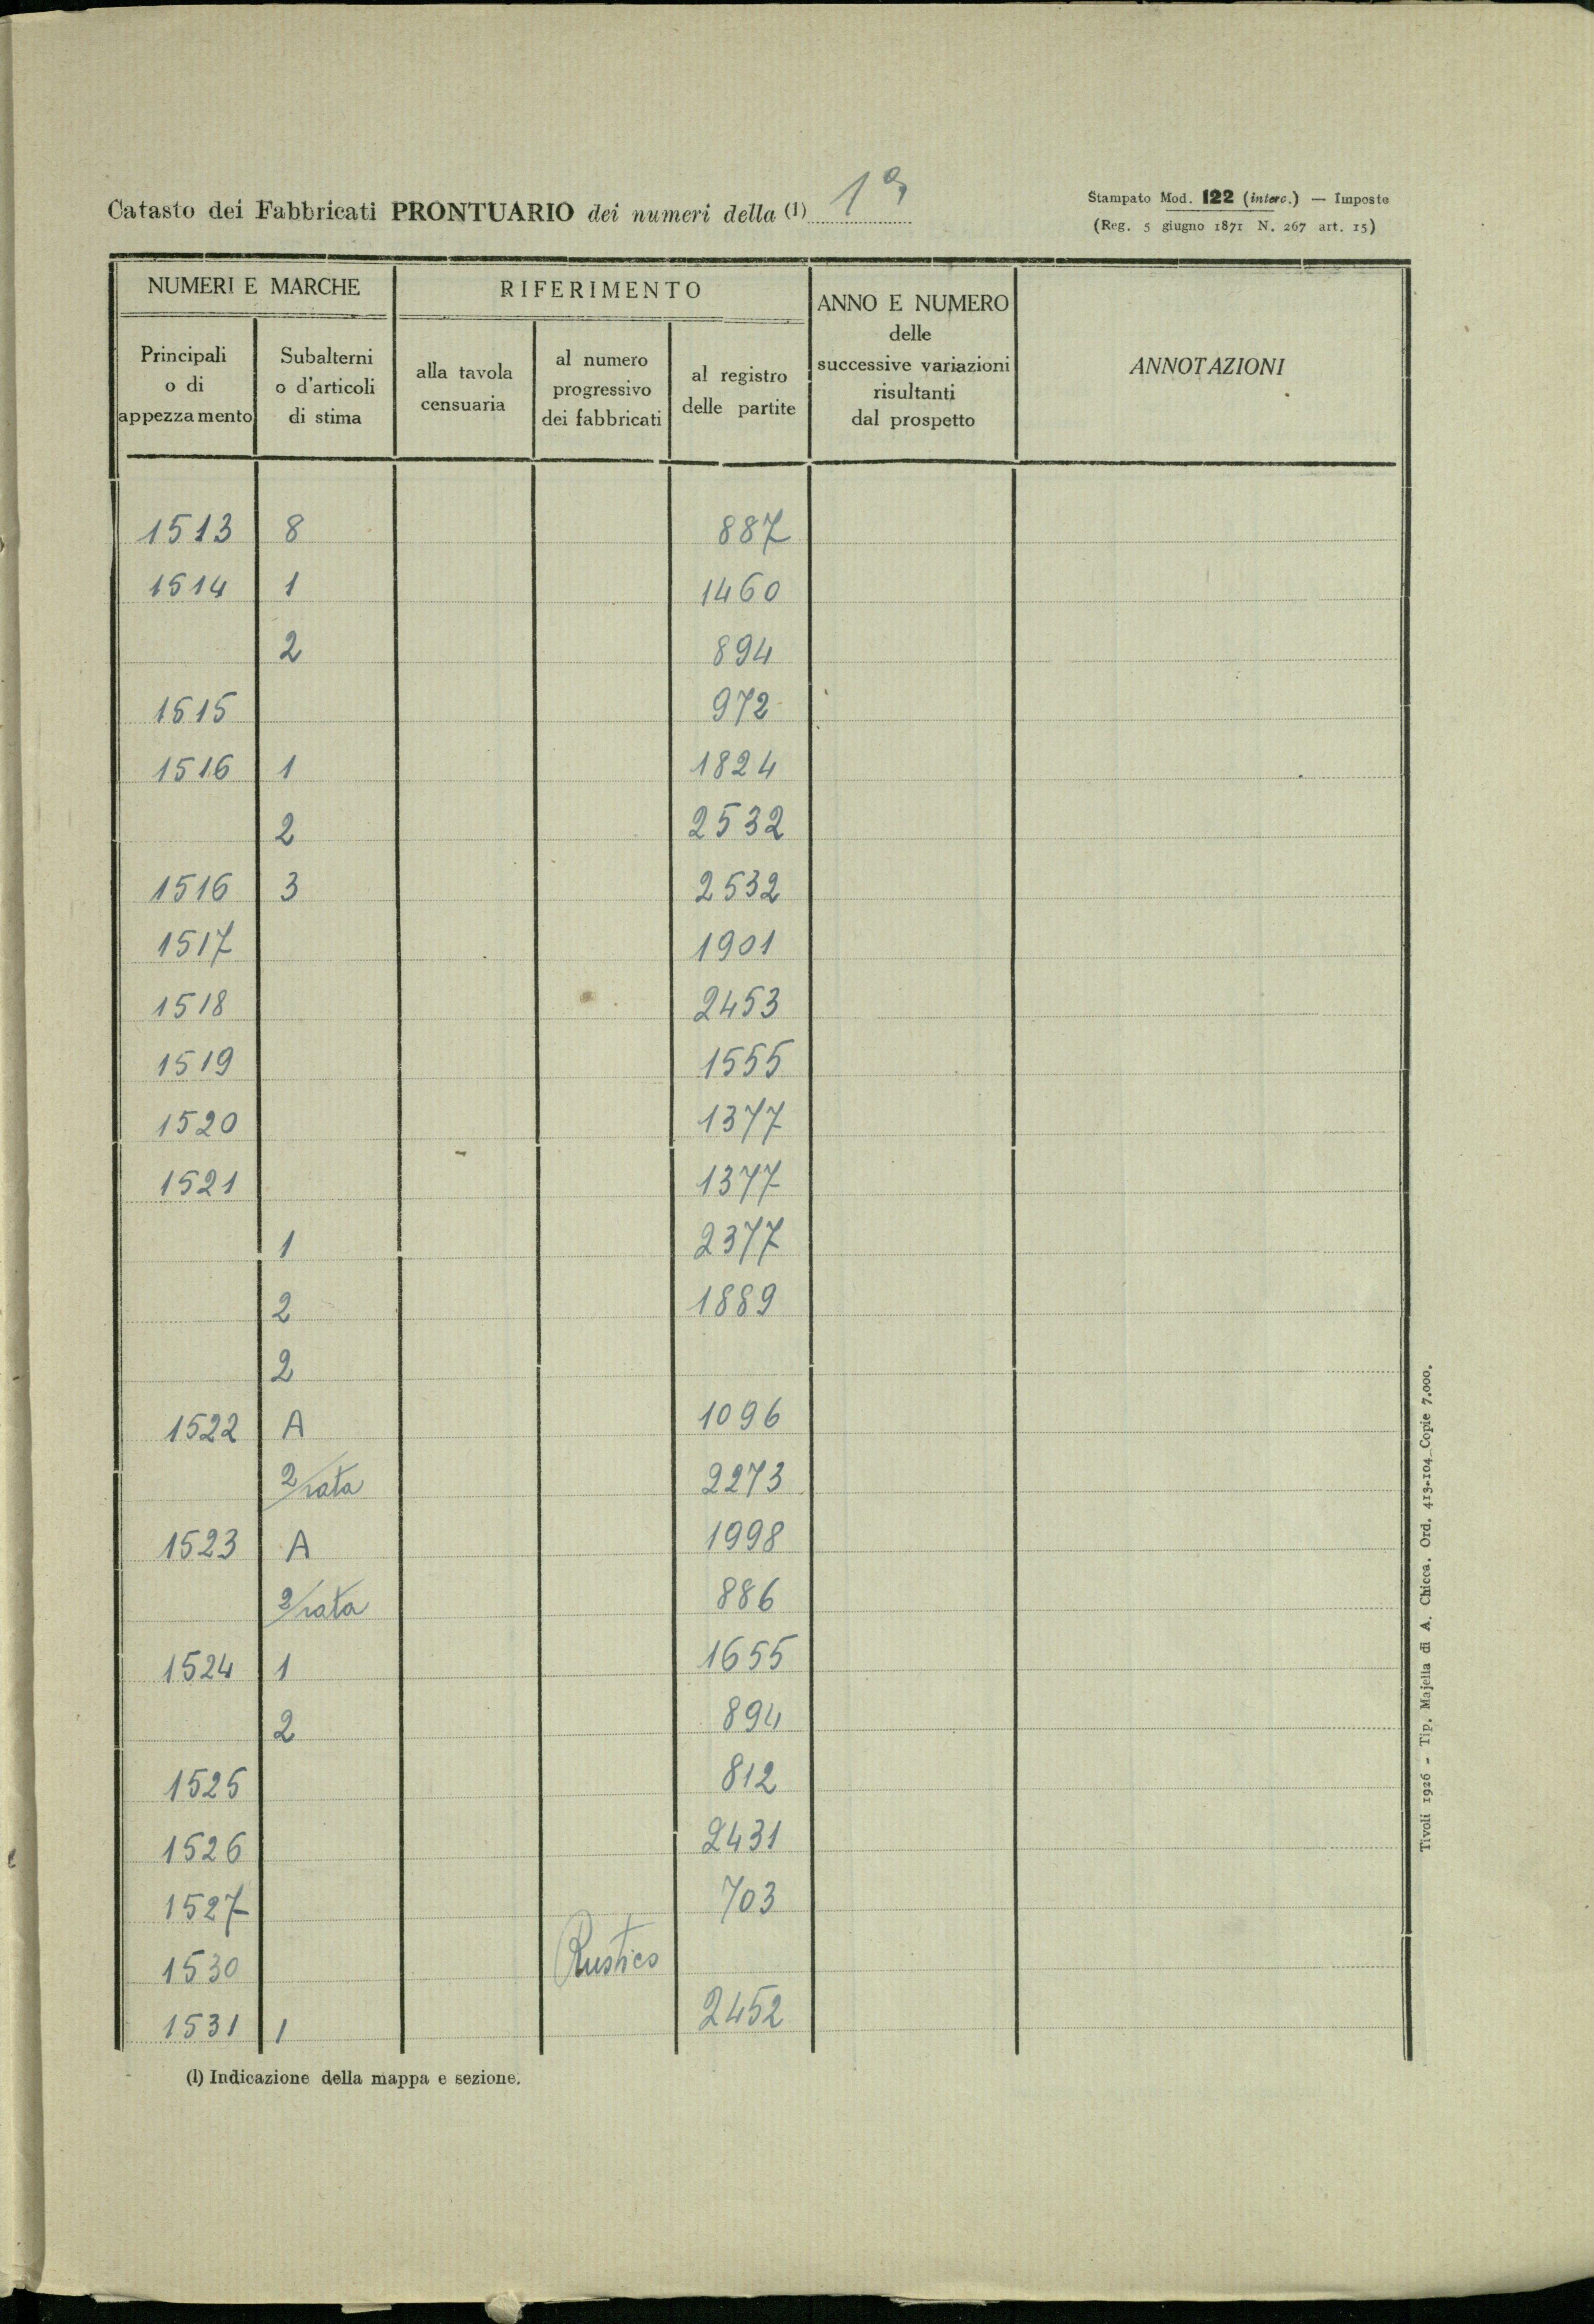 Catasto dei Fabbricati PRONTUARIO dei numeri della (1) 1ª
Stampato Mod. 122 (interc.) — Imposte
(Reg. 5 giugno 1871 N. 267 art. 15)
NUMERI E MARCHE
RIFERIMENTO
ANNO E NUMERO
delle
successive variazioni
risultanti
dal prospetto
ANNOTAZIONI
Principali
o di
appezzamento
Subalterni
o d'articoli
di stima
alla tavola
censuaria
al numero
progressivo
dei fabbricati
al registro
delle partite
1513 8 887
1514 1 1460
2 894
1515 972
1516 1 1824
2 2532
1516 3 2532
1517 1901
1518 2453
1519 1555
1520 1377
1521 1377
1 2377
2 1889
2
1522 A 1096
2/rata 2273
1523 A 1998
2/rata 886
1524 1 1655
2 894
1525 812
1526 2431
1527 703
1530 Rustico
1531 1 2452
(1) Indicazione della mappa e sezione.
Tivoli 1926 - Tip. Majella di A. Chicca. Ord. 413-104 Copie 7.000.